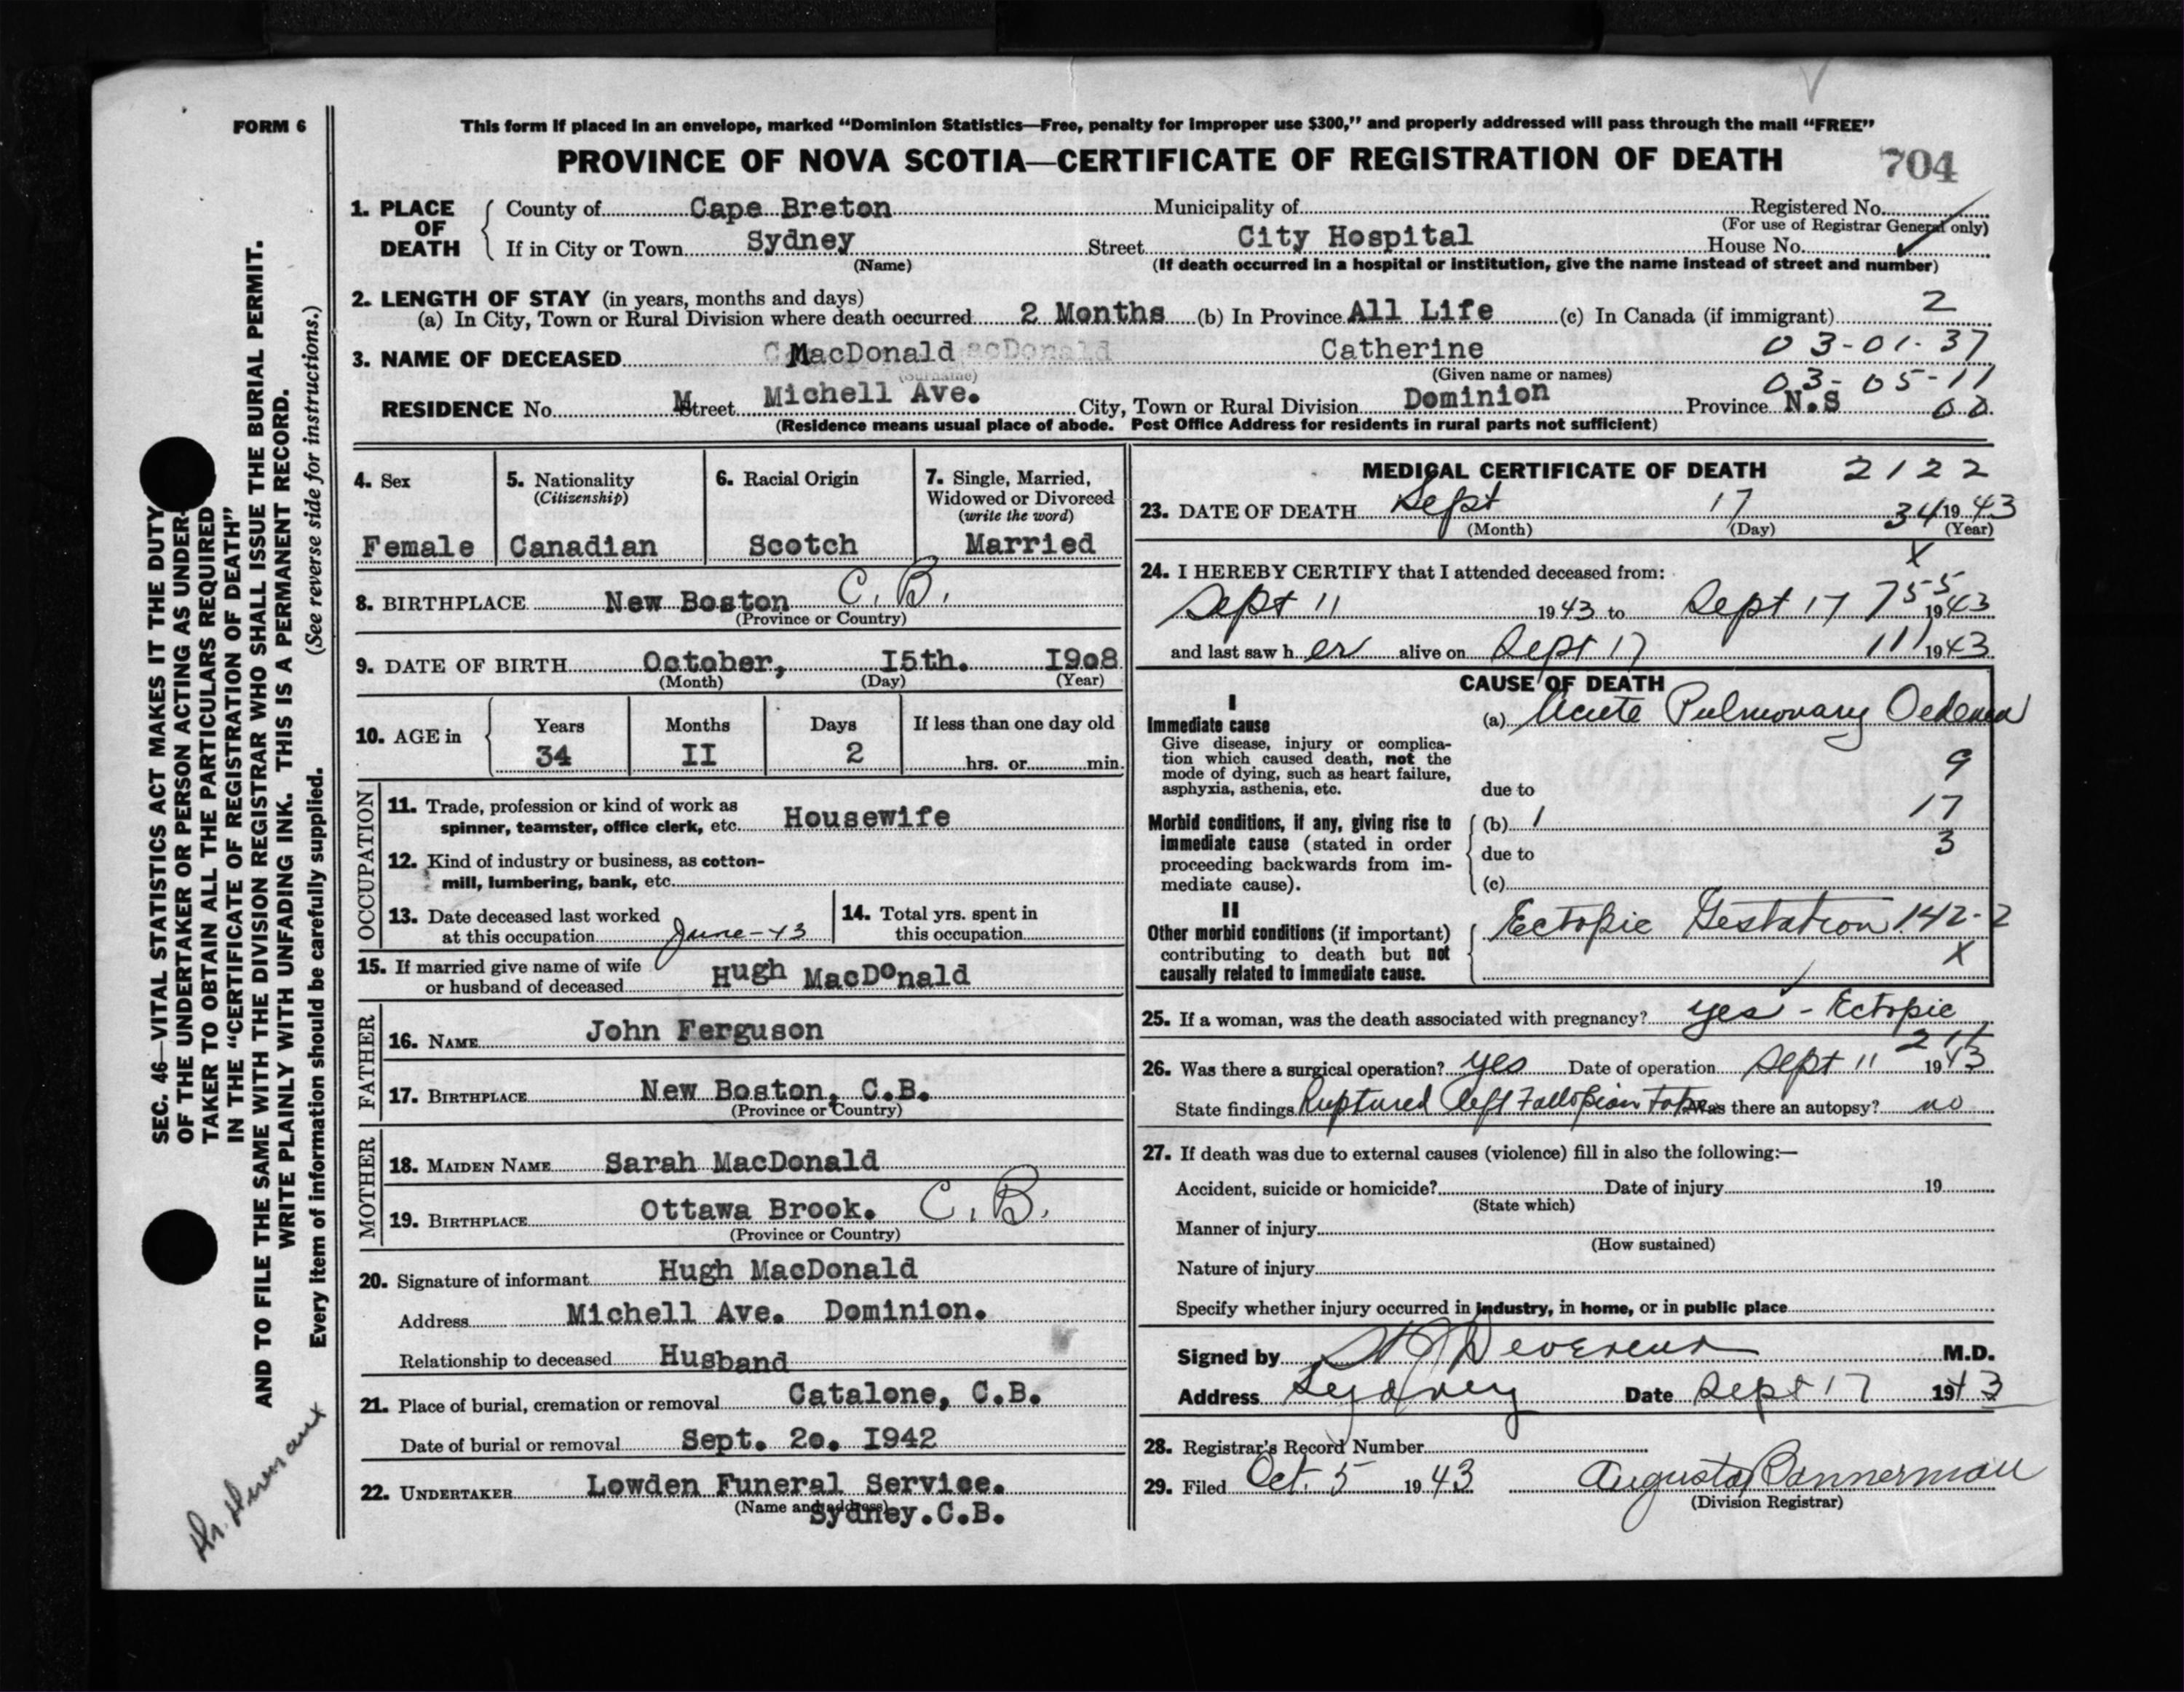 FORM 6
This form if placed in an envelope, marked "Dominion Statistics—Free, penalty for improper use $300," and properly addressed will pass through the mail "FREE"
PROVINCE OF NOVA SCOTIA—CERTIFICATE OF REGISTRATION OF DEATH 704
1. PLACE OF DEATH { County of Cape Breton Municipality of Registered No.
(For use of Registrar General only)
If in City or Town Sydney Street City Hospital House No.
(Name) (If death occurred in a hospital or institution, give the name instead of street and number)
2. LENGTH OF STAY (in years, months and days)
(a) In City, Town or Rural Division where death occurred 2 Months (b) In Province All Life (c) In Canada (if immigrant) 2
3. NAME OF DECEASED MacDonald Catherine 03-01-37
(Surname) (Given name or names) 03-05-11
RESIDENCE No. Street Michell Ave. City, Town or Rural Division Dominion Province N.S 00
(Residence means usual place of abode. Post Office Address for residents in rural parts not sufficient)
4. Sex
Female
5. Nationality
(Citizenship)
Canadian
6. Racial Origin
Scotch
7. Single, Married,
Widowed or Divorced
(write the word)
Married
8. BIRTHPLACE New Boston C.B.
(Province or Country)
9. DATE OF BIRTH October, I5th. I9o8
(Month) (Day) (Year)
10. AGE in { Years Months Days If less than one day old
34 II 2 hrs. or min.
OCCUPATION
11. Trade, profession or kind of work as
spinner, teamster, office clerk, etc. Housewife
12. Kind of industry or business, as cotton-
mill, lumbering, bank, etc.
13. Date deceased last worked
at this occupation June-43
14. Total yrs. spent in
this occupation
15. If married give name of wife
or husband of deceased Hugh MacDonald
FATHER
16. NAME John Ferguson
17. BIRTHPLACE New Boston, C.B.
(Province or Country)
MOTHER
18. MAIDEN NAME Sarah MacDonald
19. BIRTHPLACE Ottawa Brook. C.B.
(Province or Country)
20. Signature of informant Hugh MacDonald
Address Michell Ave. Dominion.
Relationship to deceased Husband
21. Place of burial, cremation or removal Catalone, C.B.
Date of burial or removal Sept. 2o. I942
22. UNDERTAKER Lowden Funeral Service.
(Name and address) Sydney.C.B.
MEDICAL CERTIFICATE OF DEATH 2122
23. DATE OF DEATH Sept 17 34 19 43
(Month) (Day) (Year)
X
24. I HEREBY CERTIFY that I attended deceased from:
Sept 11 19 43 to Sept 17 755 19 43
and last saw h er alive on Sept 17 111 19 43
CAUSE OF DEATH
I
Immediate cause (a) Acute Pulmonary Oedema
Give disease, injury or complica-
tion which caused death, not the
mode of dying, such as heart failure,
asphyxia, asthenia, etc. due to 9
Morbid conditions, if any, giving rise to (b) 1 17
immediate cause (stated in order due to 3
proceeding backwards from im-
mediate cause). (c)
II
Other morbid conditions (if important) Ectopic Gestation 142-2
contributing to death but not X
causally related to immediate cause.
25. If a woman, was the death associated with pregnancy? yes - Ectopic
211
26. Was there a surgical operation? yes Date of operation Sept 11 19 43
State findings Ruptured left Fallopian Tube Was there an autopsy? no
27. If death was due to external causes (violence) fill in also the following:—
Accident, suicide or homicide? Date of injury 19
(State which)
Manner of injury
(How sustained)
Nature of injury
Specify whether injury occurred in industry, in home, or in public place
Signed by Devereux M.D.
Address Sydney Date Sept 17 1943
28. Registrar's Record Number
29. Filed Oct. 5 19 43 Augusta Bannerman
(Division Registrar)
SEC. 46—VITAL STATISTICS ACT MAKES IT THE DUTY
OF THE UNDERTAKER OR PERSON ACTING AS UNDER-
TAKER TO OBTAIN ALL THE PARTICULARS REQUIRED
IN THE "CERTIFICATE OF REGISTRATION OF DEATH"
AND TO FILE THE SAME WITH THE DIVISION REGISTRAR WHO SHALL ISSUE THE BURIAL PERMIT.
WRITE PLAINLY WITH UNFADING INK. THIS IS A PERMANENT RECORD.
Every item of information should be carefully supplied. (See reverse side for instructions.)